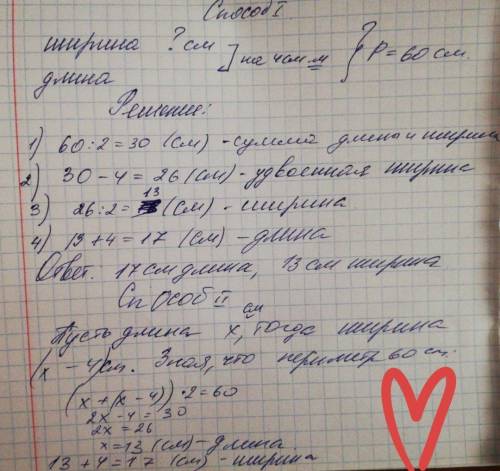 Способ I.
ширина ? см ] на 4см м } P = 60 см.
длина
Решение:
1) 60:2=30 (см) - сумма длины и ширины
2) 30-4=26(см)- удвоенная ширина
3) 26:2= 13 (см) - ширина
4) 13+4=17 (см) - длина
Ответ: 17 см длина, 13 см ширина
Способ II
Пусть длина x, см тогда ширина
(x - 4)см. Зная, что периметр 60 см.
(x+(x-4))·2=60
2x-4=30
2x=26
x=13 (см)- длина.
13+4=17 (см) - ширина